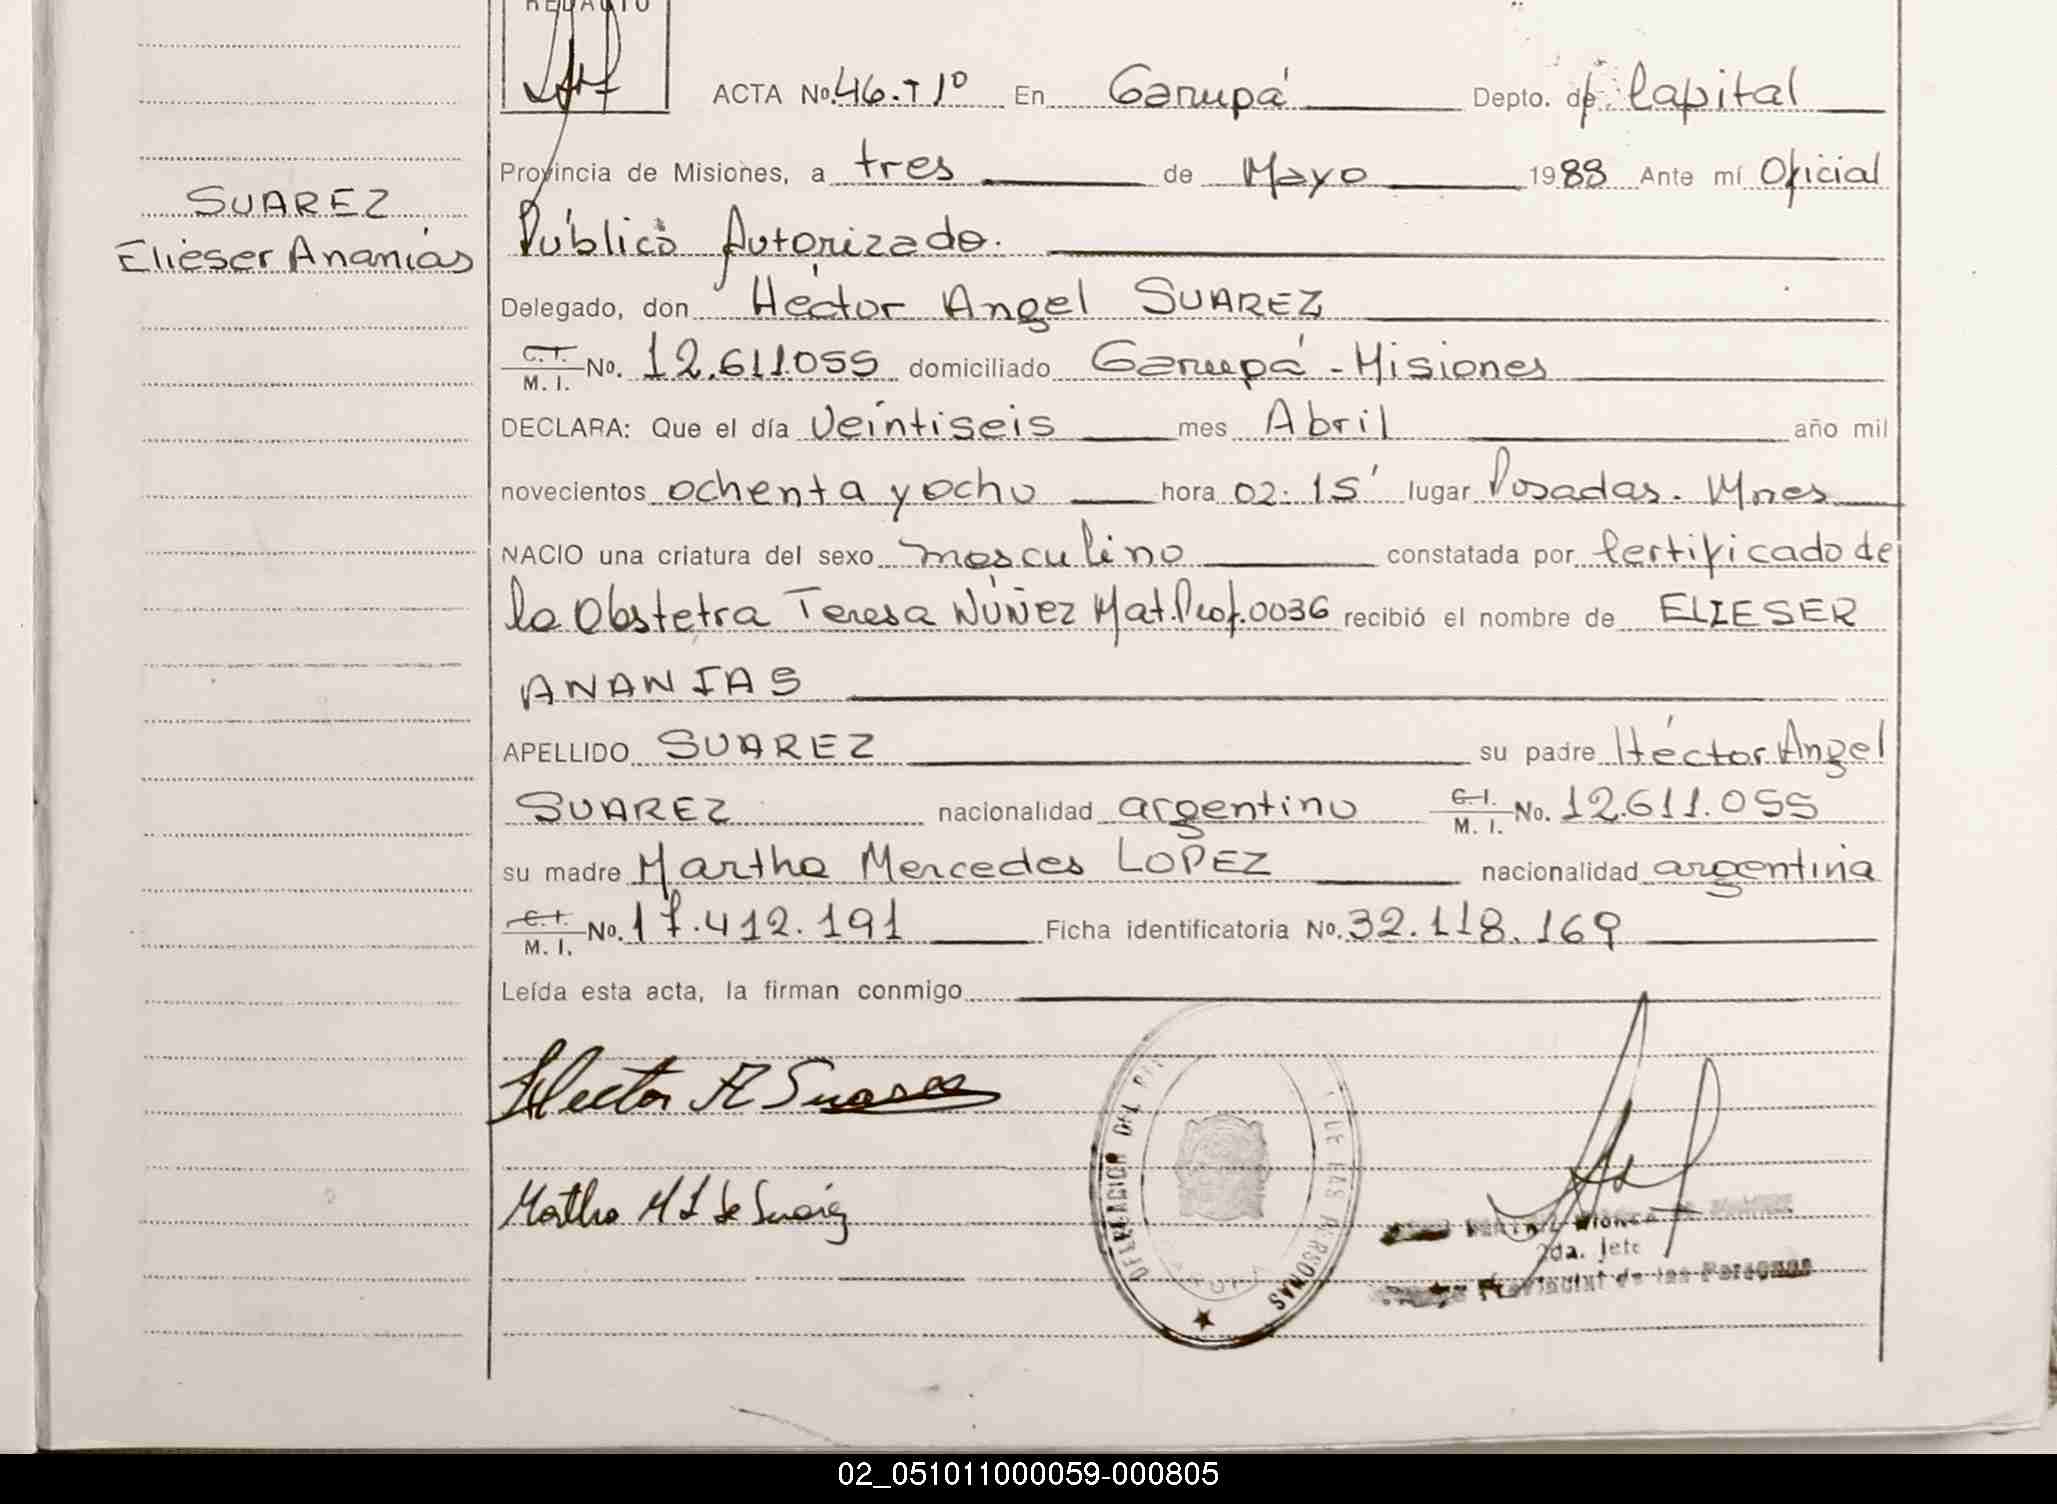 REDACTO
ACTA No. 46. T 1º En Garupá Depto. de Capital
Provincia de Misiones, a tres de Mayo 1988 Ante mí Oficial
Público Autorizado.
SUAREZ
Elieser Ananías
Delegado, don Héctor Angel SUAREZ
C. I. M. I. No. 12.611.055 domiciliado Garupá - Misiones
DECLARA: Que el día Veintiseis mes Abril año mil
novecientos ochenta y ocho hora 02:15' lugar Posadas. Mnes
NACIO una criatura del sexo masculino constatada por Certificado de
la Obstetra Teresa NÚÑEZ Mat.Prof.0036 recibió el nombre de ELIESER
ANANIAS
APELLIDO SUAREZ su padre Héctor Angel
SUAREZ nacionalidad argentino C. I. M. I. No. 12.611.055
su madre Martha Mercedes LOPEZ nacionalidad argentina
C. I. M. I. No. 17.412.191 Ficha identificatoria No. 32.118.169
Leída esta acta, la firman conmigo
Hector A Suarez
Martha M L de Suarez
DELEGACION DEL DE LAS PERSONAS
2da. Jefe
Provincial de las Personas
02_051011000059-000805